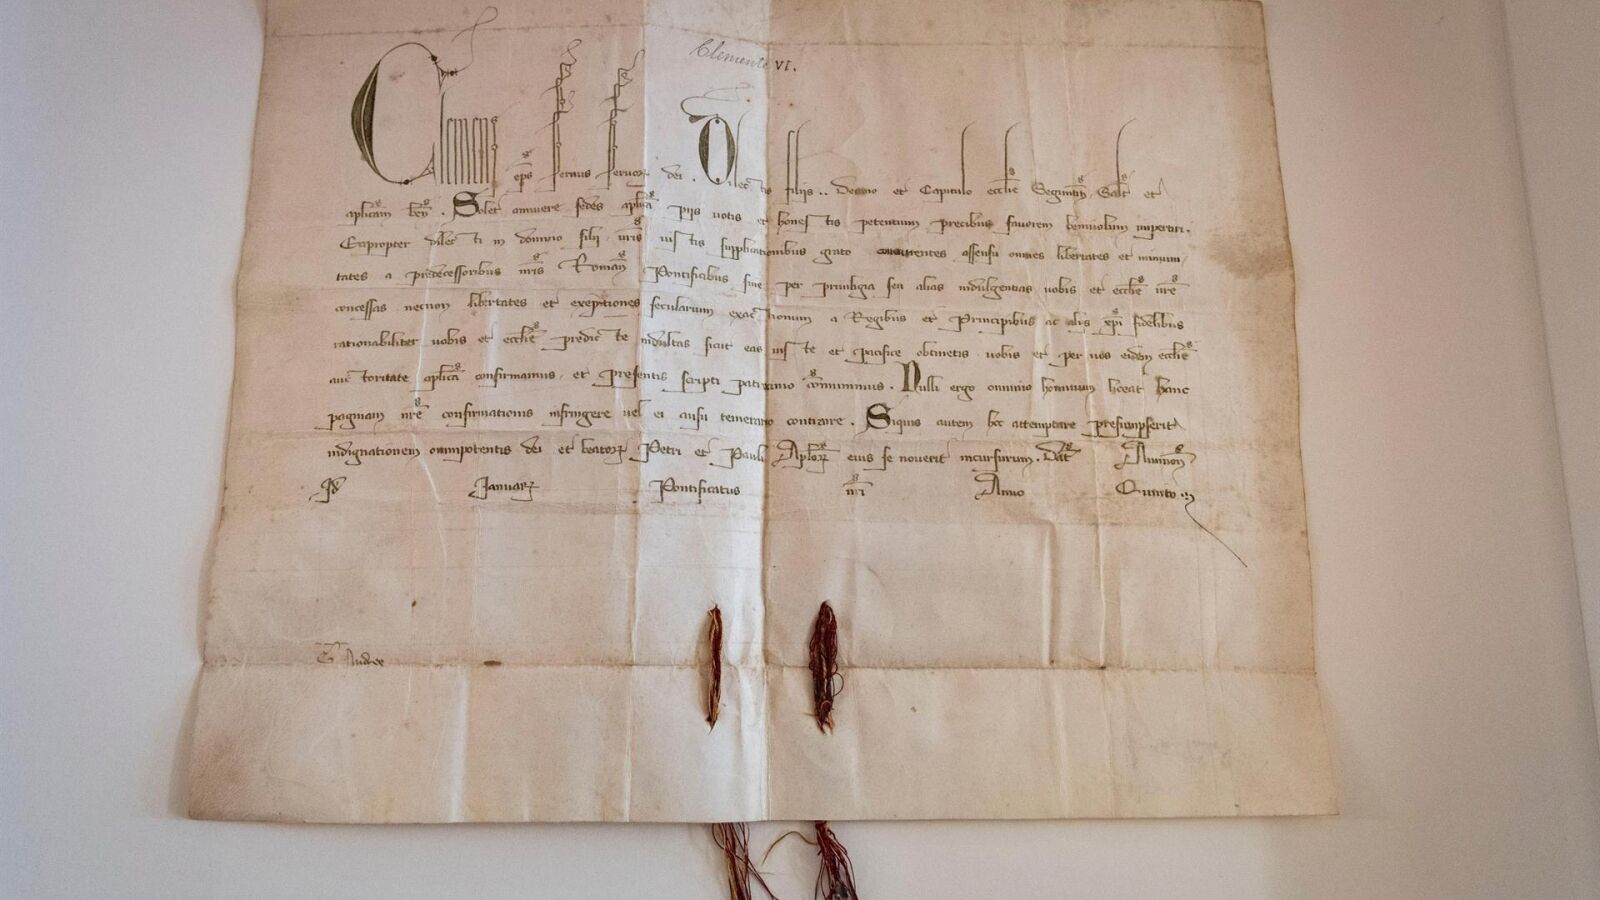 Clemente VI.
Clemens eps seruus seruor dei. Dilectis filiis.. Decano et Capitulo ecclie Seguntin Salt et
aplicam ben. Solet annuere sedes aplica piis uotis et honestis petentium precibus fauorem beniuolum impertiri.
Eapropter dilecti in domino filii uris iustis supplicationibus grato concurrentes assensu omnes libertates et immuni
tates a predecessoribus nris Roman Pontificibus siue per priuilegia seu alias indulgentias uobis et ecclie ure
concessas necnon libertates et exemptiones secularium exactionum a Regibus et Principibus ac aliis xpi fidelibus
rationabiliter uobis et ecclie predicte indultas sicut eas iuste et pacifice obtinetis uobis et per uos eidem ecclie
auctoritate aplica confirmamus et presentis scripti patrocinio communimus. Nulli ergo omnino hominum liceat hanc
paginam nre confirmationis infringere uel ei ausu temerario contraire. Siquis autem hoc attemptare presumpserit
indignationem omnipotentis dei et beator Petri et Pauli Aplor eius se nouerit incursurum. Dat Auinion
Januar Pontificatus nri Anno Quinto
Andree